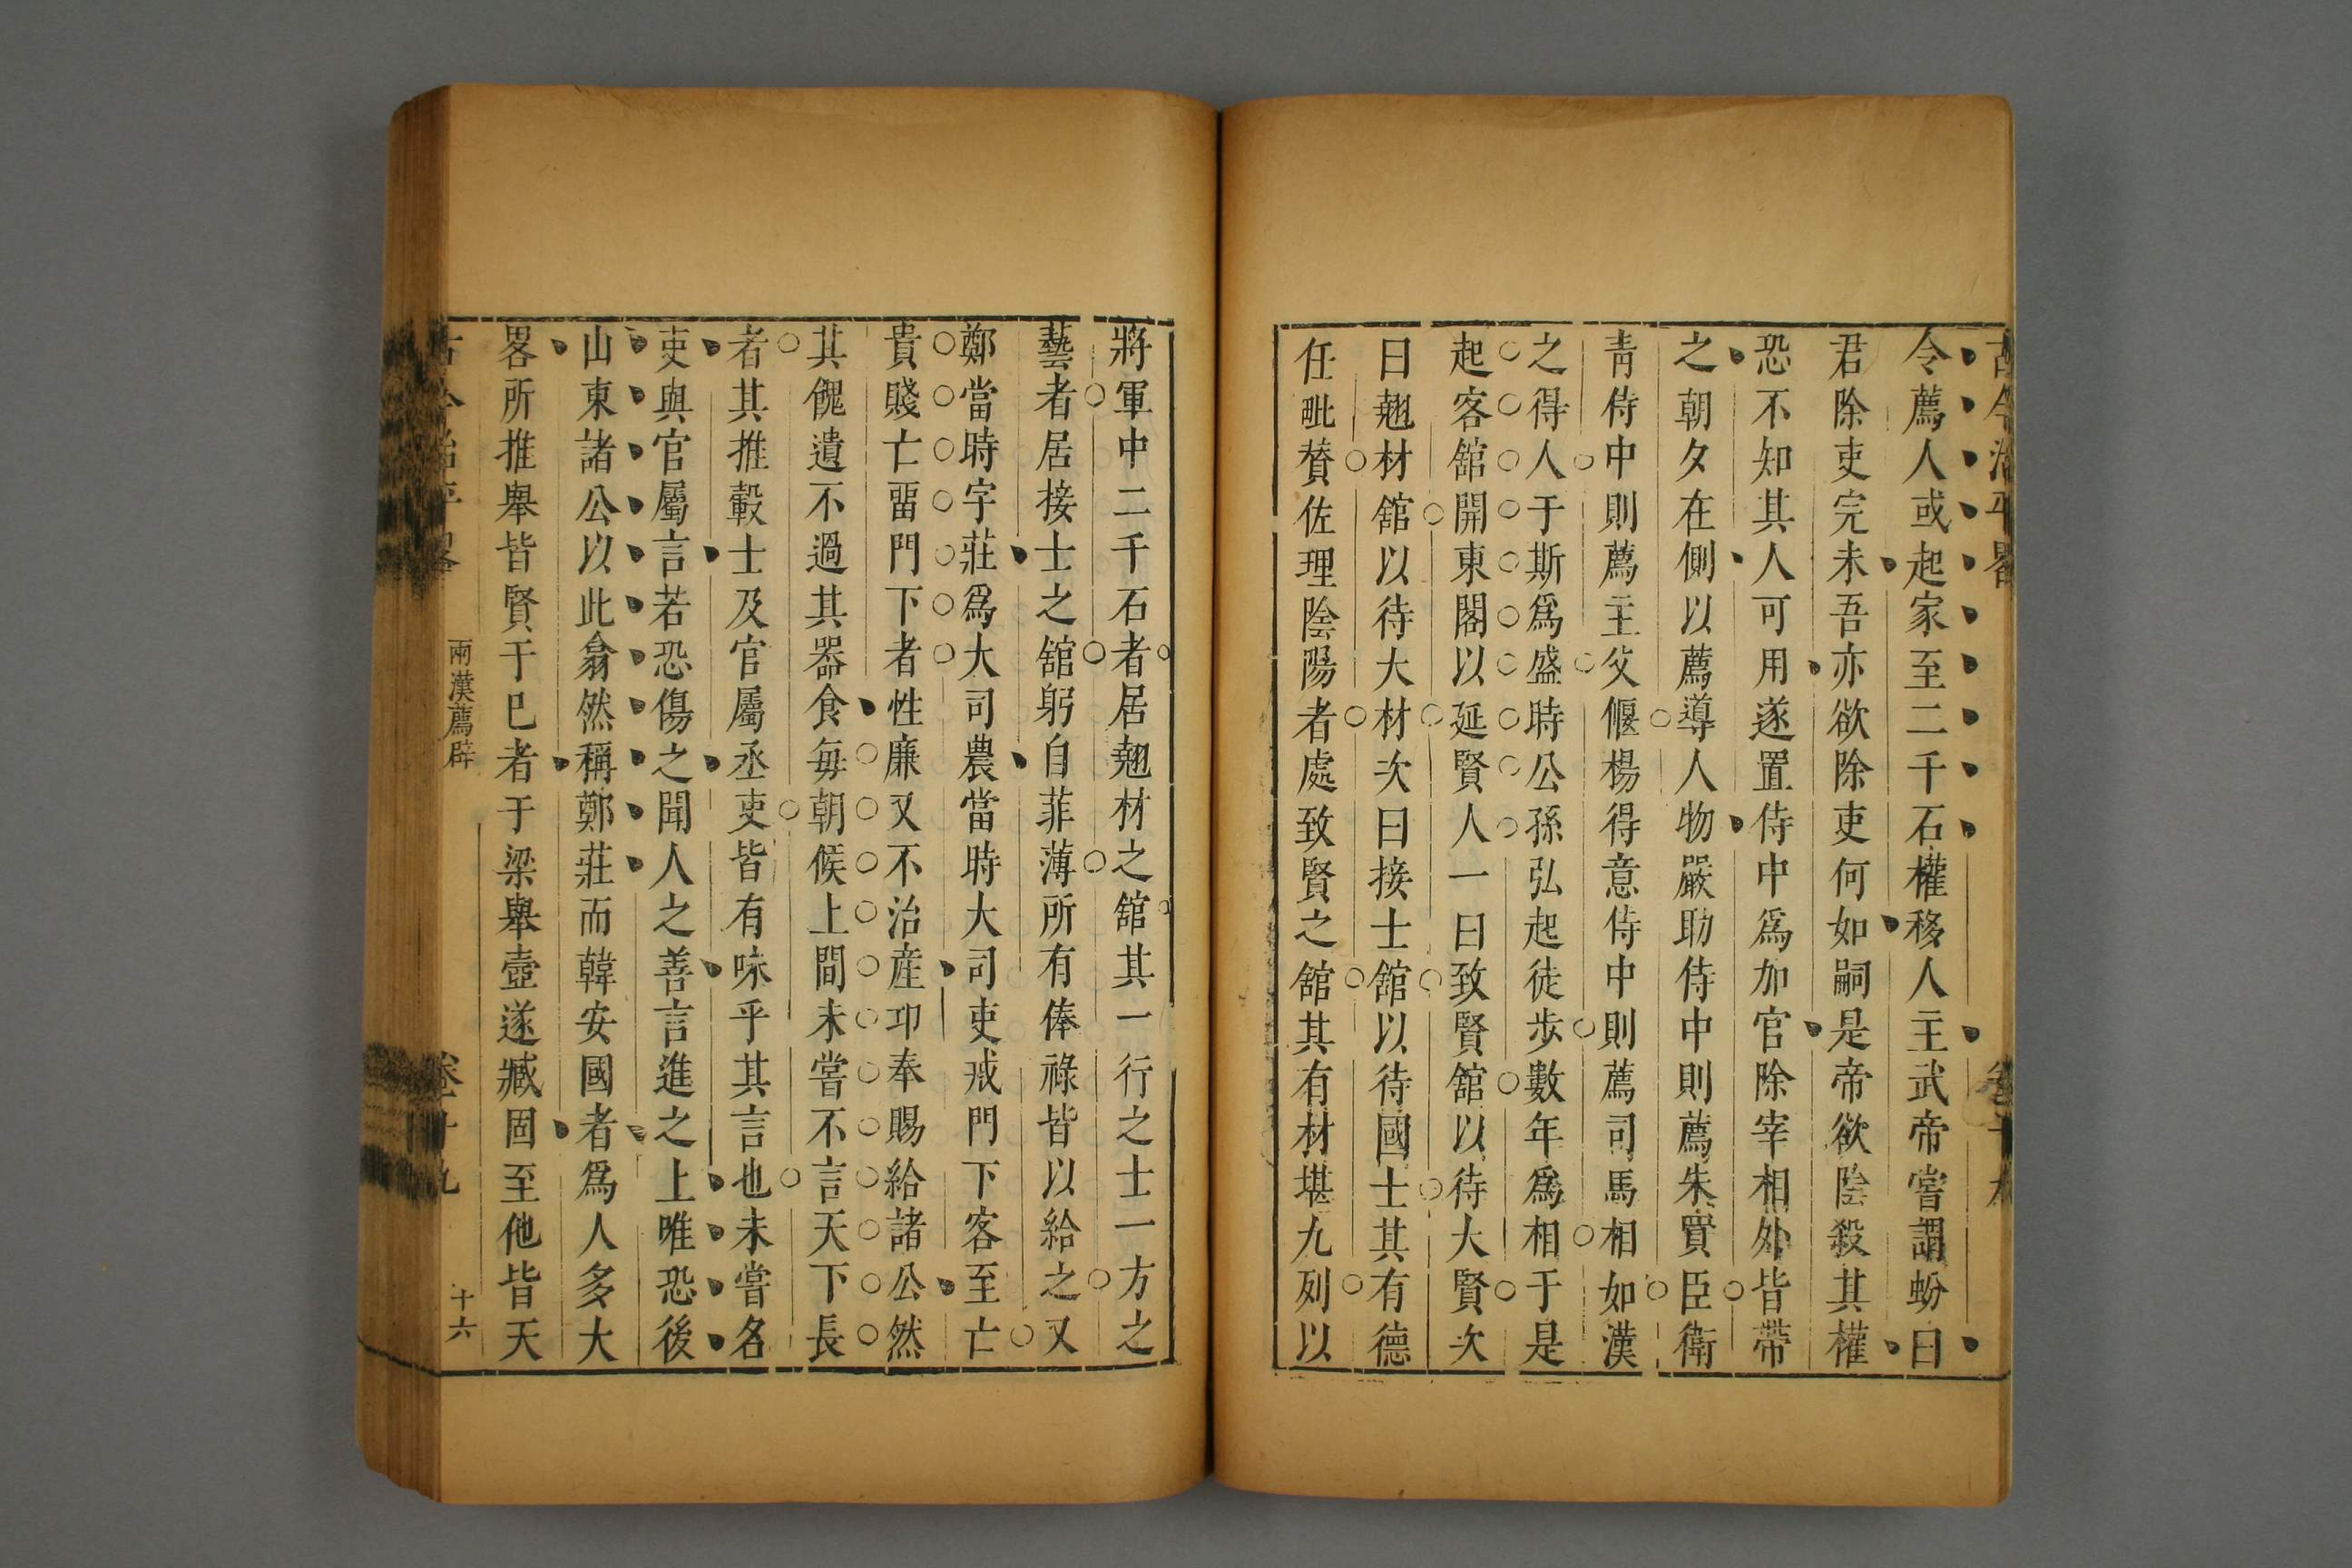 古今治平畧
卷十九
令薦人或起家至二千石權移人主武帝嘗謂蚡曰
君除吏完未吾亦欲除吏何如嗣是帝欲陰殺其權
恐不知其人可用遂置侍中爲加官除宰相外皆帶
之朝夕在側以薦導人物嚴助侍中則薦朱買臣衛
靑侍中則薦主父偃楊得意侍中則薦司馬相如漢
之得人于斯爲盛時公孫弘起徒步數年爲相于是
起客舘開東閣以延賢人一曰致賢舘以待大賢次
曰翹材舘以待大材次曰接士舘以待國士其有德
任毗贊佐理陰陽者處致賢之舘其有材堪九列以
將軍中二千石者居翹材之舘其一行之士一方之
藝者居接士之舘躬自菲薄所有俸祿皆以給之又
鄭當時字莊爲大司農當時大司吏戒門下客至亡
貴賤亡畱門下者性廉又不治産卬奉賜給諸公然
其餽遺不過其器食每朝候上間未嘗不言天下長
者其推轂士及官屬丞吏皆有味乎其言也未嘗名
吏與官屬言若恐傷之聞人之善言進之上唯恐後
山東諸公以此翕然稱鄭莊而韓安國者爲人多大
畧所推舉皆賢于已者于梁舉壺遂臧固至他皆天
古今治平畧
兩漢薦辟
卷十九
十六